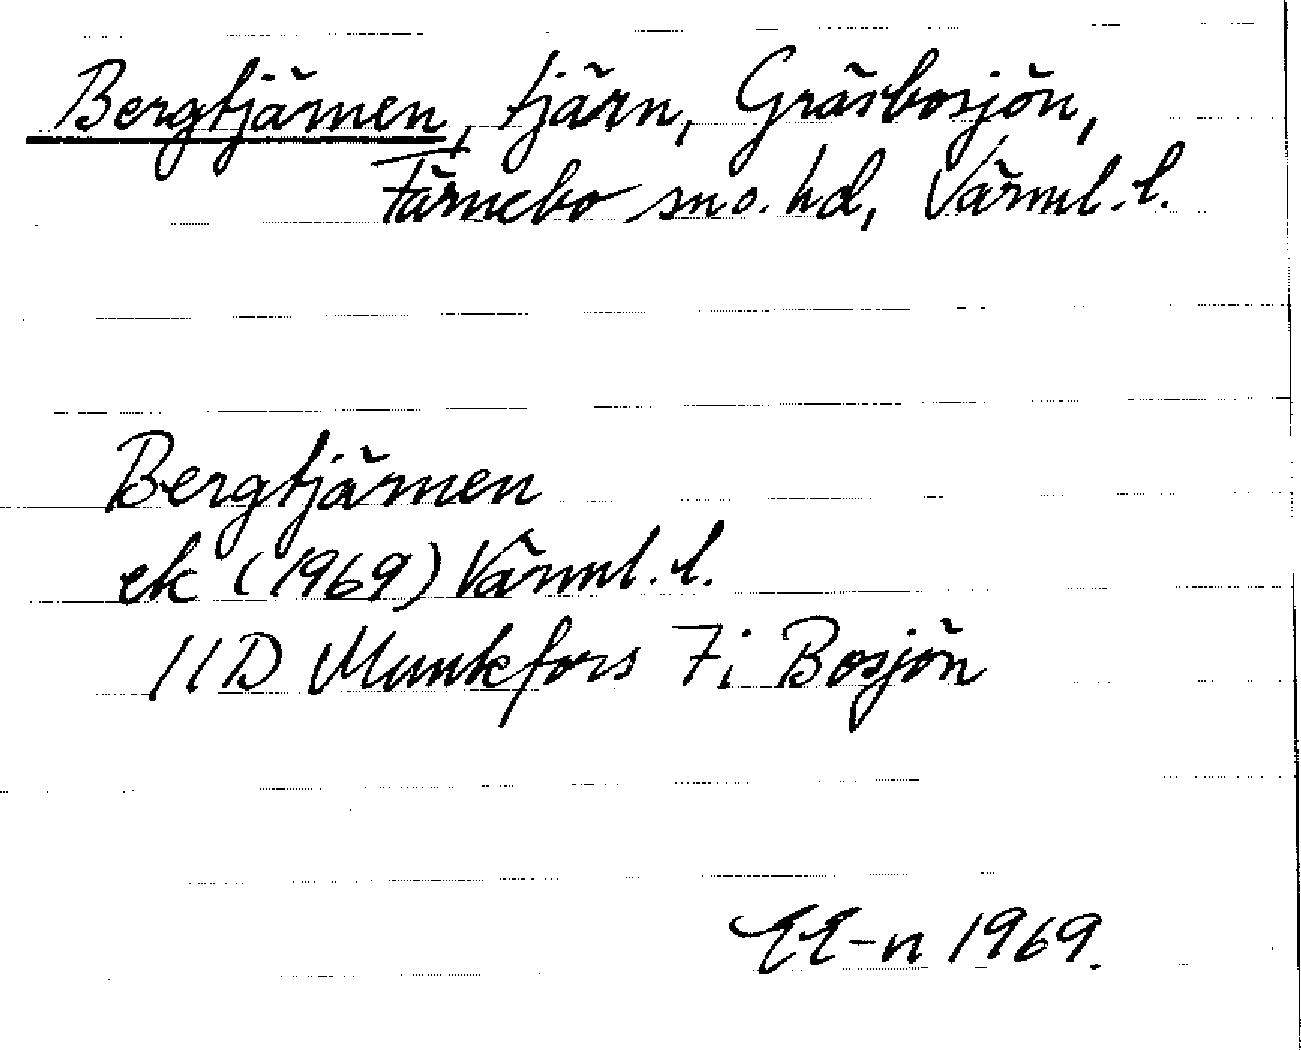 Bergtjärnen, tjärn, Gräsbosjön,
Färnebo sn o. hd, Värml. l.
Bergtjärnen
ek (1969) Värml. l.
11D Munkfors 7i Bosjön
EE-n 1969.